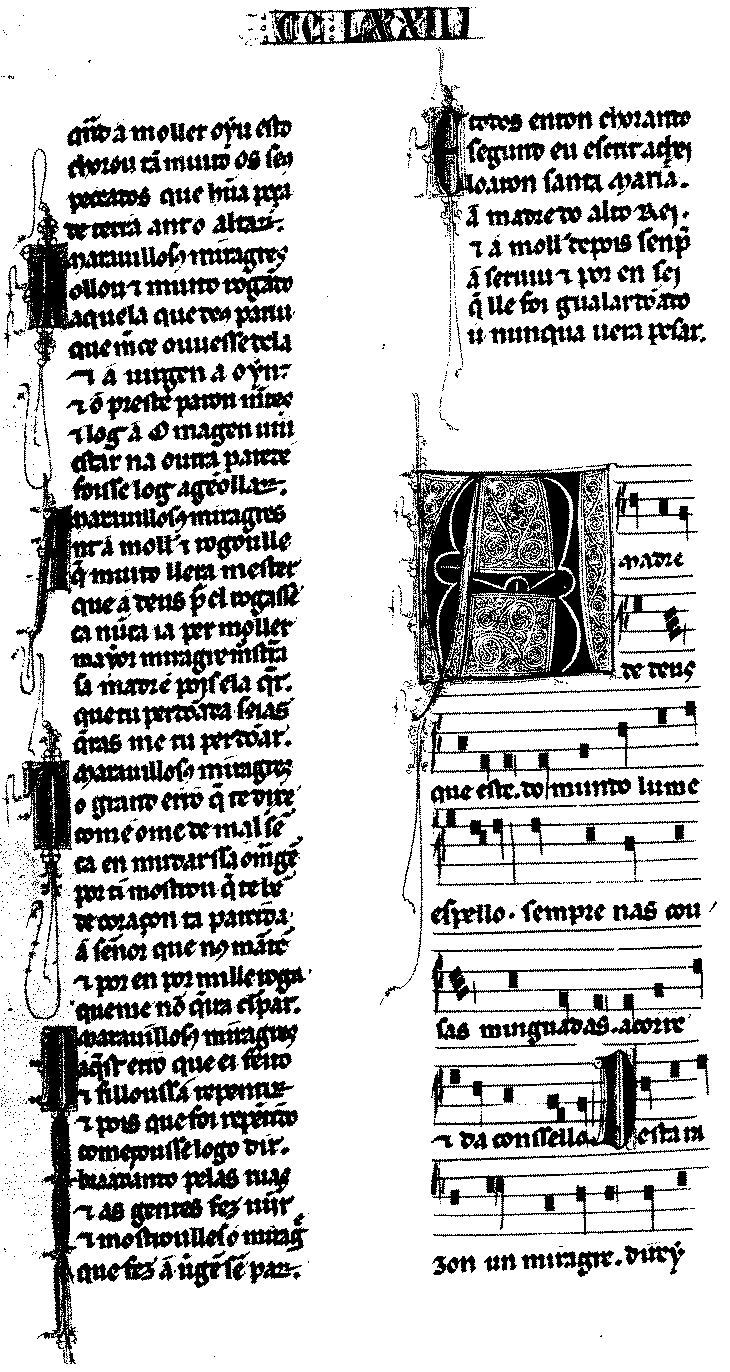 CCLXXII
quãd a moller oyu esto
chorou tã muito os seus
peccatos que hũa pera
de terra ant o altar.
Marauillosos miragres
ollou ⁊ muito rogãdo
aquela que dos peccad
que mce ouuesse dela
⁊ a uirgen a oyr.
⁊ o preste parou mẽtes
⁊ log a omagen uiu
estar na outra parede
fousse log ageollar.
Marauillosos miragres
ant a moll ⁊ rogoulle
q̃ muito llera mester
que a deus p̃ el rogasse
ca nũca ia per moller
mayor miragre mostra
sa madre poys ela q̃r.
que tu perdõada seias
q̃ras me tu perdõar.
Marauillosos miragres
o grand erro q̃ te dixe
come ome de mal sẽ
ca en mudarssa omagẽ
por ti mostrou q̃ te bẽ
de coraçon ta partida
a sennor que nos mãtẽ
⁊ por en por mill e roga
que me nõ q̃ira espar.
Marauillosos miragres
aqst erro que ei feito
⁊ fillousse a repentir
⁊ pois que foi repẽtido
começousse logo dir.
braadando pelas ruas
⁊ as gentes fez uĩir
⁊ mostroulles o mirag
que fez a uirgẽ sẽ par.
E todos enton chorando
segundo eu escrit achei
loaron santa Maria.
a madre do alto Rei.
⁊ a moll depois senp̃
a seruiu ⁊ por en sei
q̃ lle foi gualardõado
u nunqua uera pesar.
A Madre
de deus
que este. do mundo lume
espello. sempre nas cou
sas minguadas. acorre
⁊ da conssello. Desta ra
zon un miragre. direy